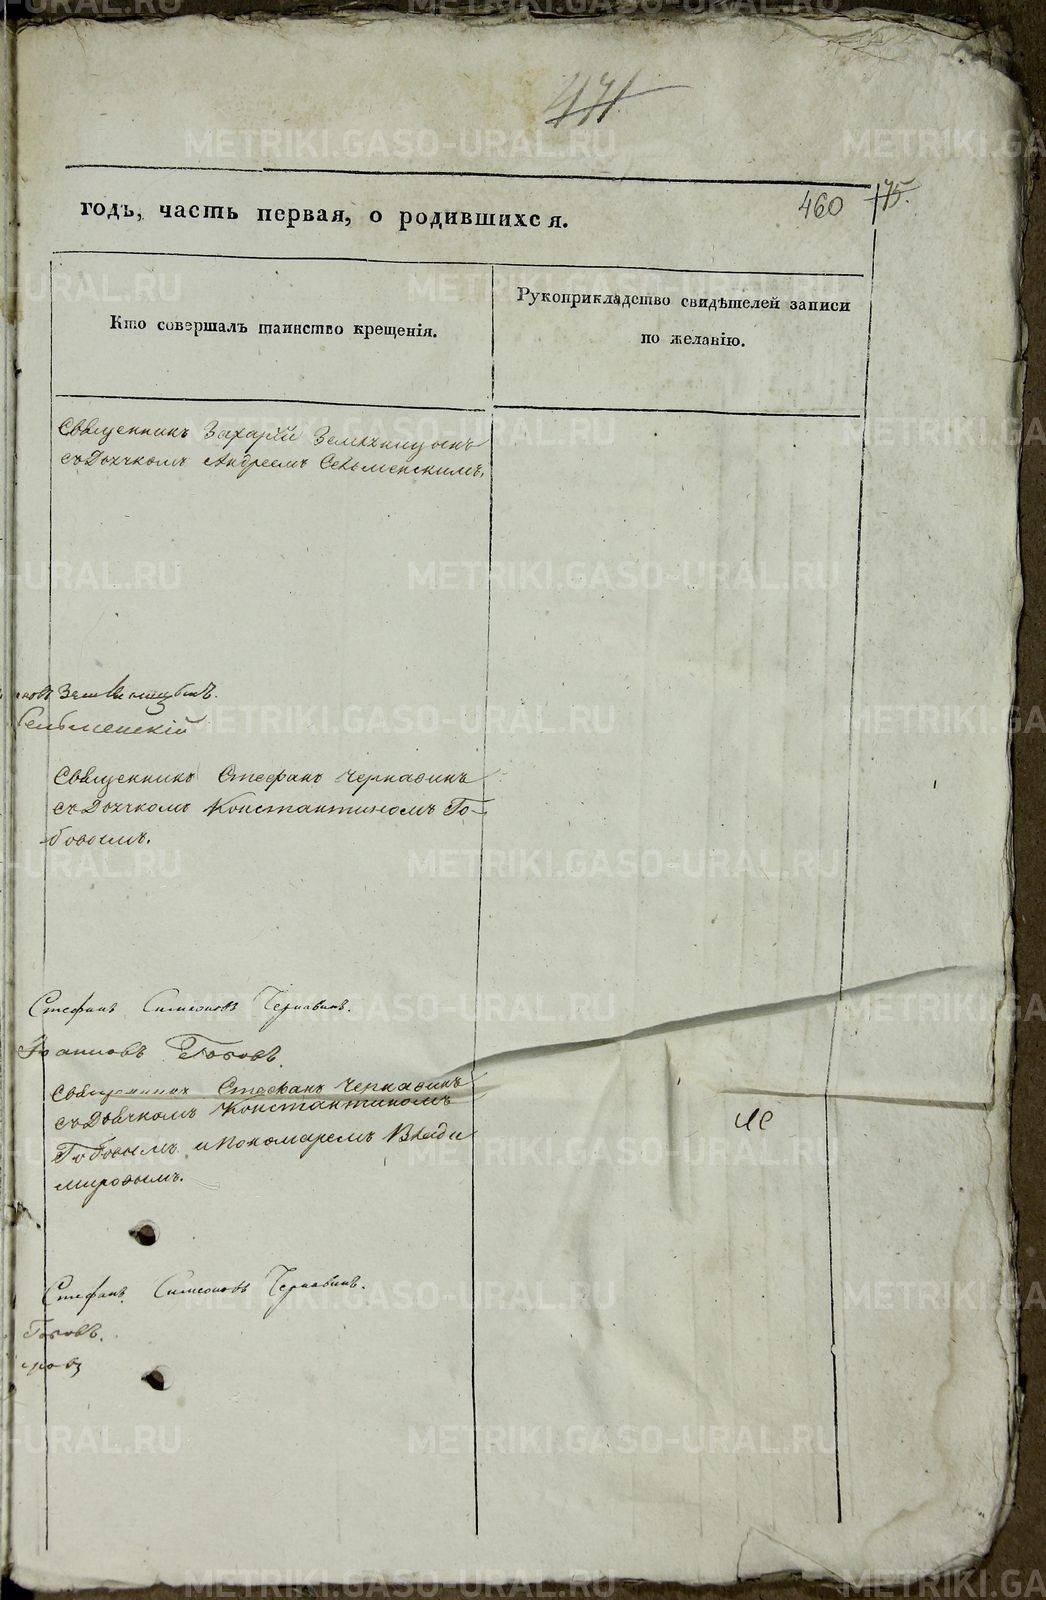 471
460 175.
годъ, часть первая, о родившихся.
Кто совершалъ таинство крещенія.
Рукоприкладство свидѣтелей записи
по желанію.
Священникъ Захарій Земляницынъ
съ Дьячкомъ Андреемъ Сельменскимъ.
новъ Земляницынъ.
Сельменскій
Священникъ Стефанъ Чернавинъ
съ Дьячкомъ Константиномъ То-
бовымъ.
Стефанъ Симеоновъ Чернавинъ.
Іоанновъ
Священникъ Стефанъ Чернавинъ
съ Дьячкомъ Константиномъ
Тобовымъ и Пономаремъ Влади
мировымъ.
Стефанъ Симеоновъ Чернавинъ.
METRIKI.GASO-URAL.RU